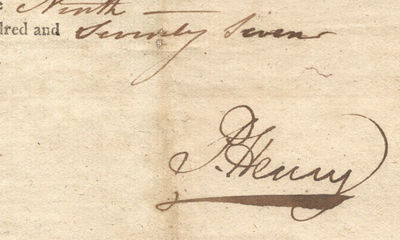 Ninth
dred and Seventy Seven
P. Henry